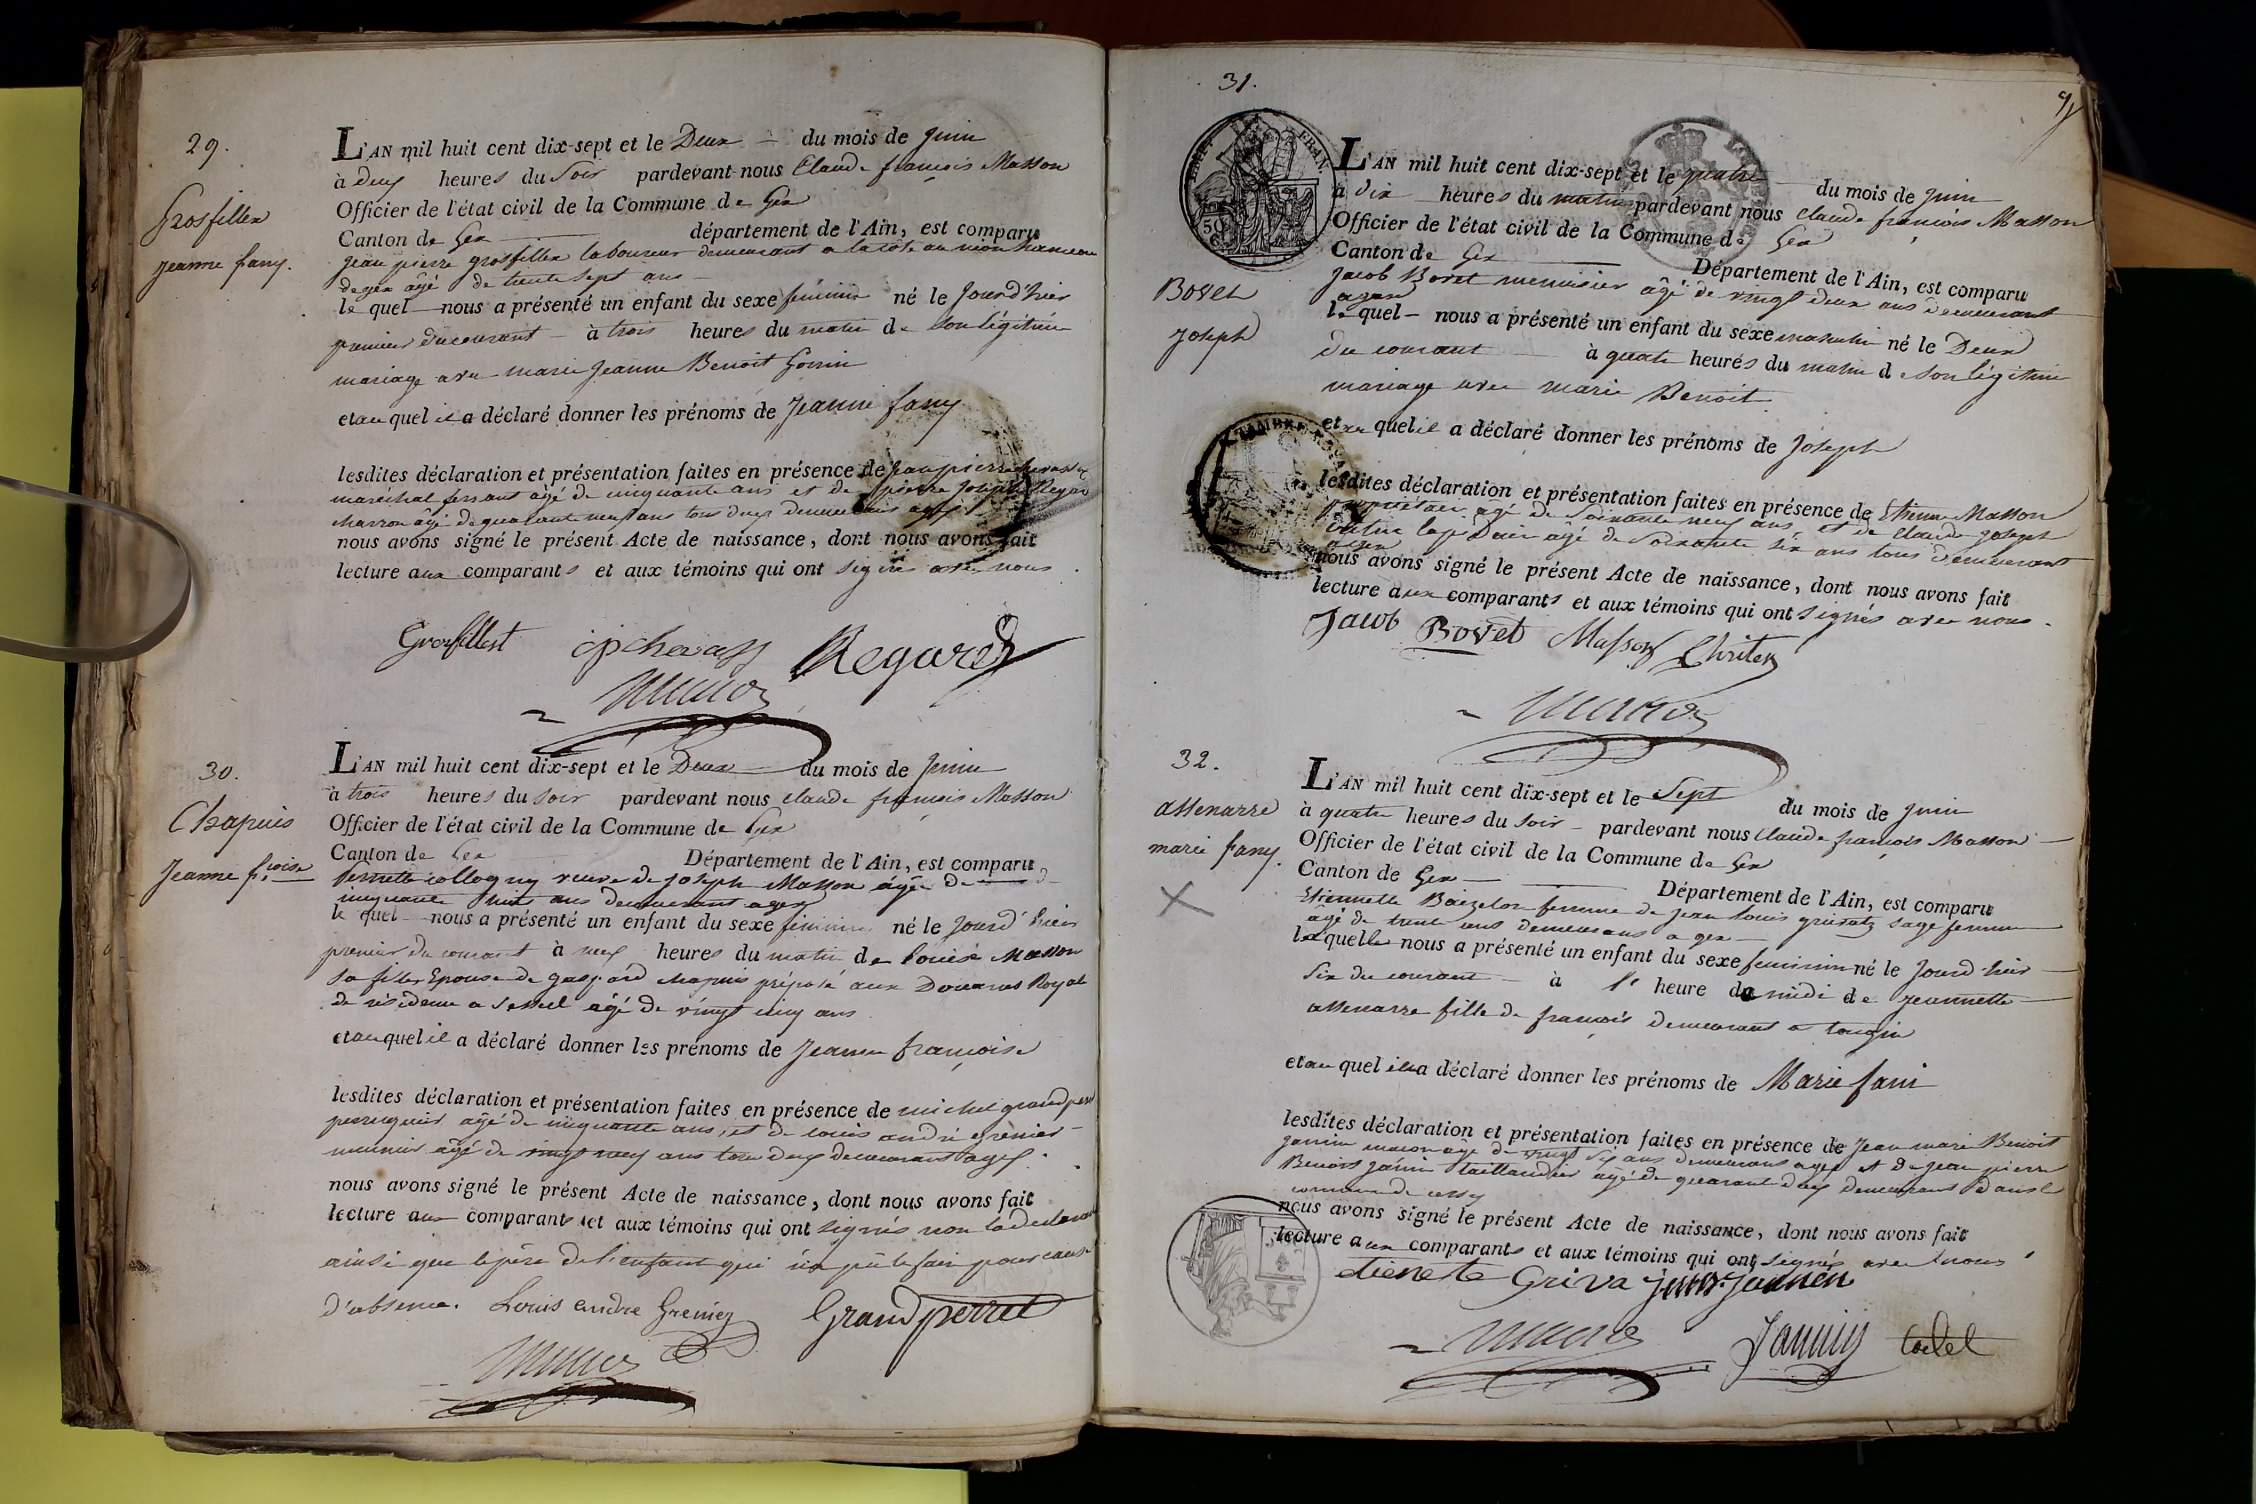 29.
Grosfillex
Jeanne fany.
L'AN mil huit cent dix-sept et le Deux du mois de Juin
à deux heures du Soir pardevant-nous Claude françois Masson
Officier de l'état civil de la Commune de Gex
Canton de Gex département de l'Ain, est comparu
jean pierre grosfillex laboureur demeurant a la côte au hameau
de gex âgé de trente sept ans
le quel nous a présenté un enfant du sexe féminin né le Jourd'hier
premier du courant à trois heures du matin de son légitime
mariage avec marie Jeanne Benoit Gonin
et au quel il a déclaré donner les prénoms de Jeanne fany
lesdites déclaration et présentation faites en présence de jean pierre
maréchal ferrant âgé de cinquante ans et de pierre Joseph Regard
charron âgé de quarante neuf ans tous deux demeurans a gex
nous avons signé le présent Acte de naissance, dont nous avons fait
lecture aux comparants et aux témoins qui ont signés avec nous
Grosfillext jpchevassu Regard
Masson
30.
Chapuis
Jeanne f.oise
L'AN mil huit cent dix-sept et le Deux du mois de Juin
à trois heures du soir pardevant nous claude françois Masson
Officier de l'état civil de la Commune de Gex
Canton de Gex Département de l'Ain, est comparu
Pernette collogny veuve de joseph Masson âgée de
cinquante huit ans demeurant a gex
le quel nous a présenté un enfant du sexe féminin né le Jourd'hier
premier du courant à neuf heures du matin de Louise Masson
sa fille Epouse de gaspard chapuis préposé aux Douanes Royale
de résidence a âgé de vingt cinq ans
et au quel il a déclaré donner les prénoms de Jeanne françoise
lesdites déclaration et présentation faites en présence de michel grandperret
perruquier âgé de cinquante ans, et de Louis andré grenier
meunier âgé de vingt neuf ans tous deux demeurant a gex.
nous avons signé le présent Acte de naissance, dont nous avons fait
lecture aux comparants et aux témoins qui ont signés non la déclarante
ainsi que le père de l'enfant qui n'a pû le faire pour cause
d'absence. Louis andre Grenier Grandperret
Masson
31.
Bovet
Joseph
L'AN mil huit cent dix-sept et le quatre du mois de Juin
à dix heures du matin pardevant nous claude françois Masson
Officier de l'état civil de la Commune de Gex
Canton de Gex Département de l'Ain, est comparu
Jacob Bovet menuisier âgé de vingt deux ans demeurant
a gex
le quel nous a présenté un enfant du sexe masculin né le Deux
du courant à quatre heures du matin de son légitime
mariage avec marie Benoit
et au quel il a déclaré donner les prénoms de Joseph
lesdites déclaration et présentation faites en présence de Etienne Masson
propriétaire âgé de soixante neuf ans, et de claude joseph
âgé de soixante six ans tous demeurant
a gex
nous avons signé le présent Acte de naissance, dont nous avons fait
lecture aux comparants et aux témoins qui ont signés avec nous.
Jacob Bovet Masson
Masson
32.
assenarre
marie fany.
L'AN mil huit cent dix-sept et le Sept du mois de Juin
à quatre heures du soir pardevant nous claude françois Masson
Officier de l'état civil de la Commune de Gex
Canton de Gex Département de l'Ain, est comparu
Etiennette femme de jean louis grivatz sage femme
âgé de trente ans demeurans a gex
laquelle nous a présenté un enfant du sexe feminin né le Jourd'hier
six du courant à l' heure de midi de jeannette
assenarre fille de françois demeurant a tougin
et au quel ila déclaré donner les prénoms de Marie fani
lesdites déclaration et présentation faites en présence de Jean marie Benoit
janin maçon âgé de vingt six ans demeurans a gex et de jean pierre
Benoit janin taillandier âgé de quarante deux demeurant dans la
commune de cessy
nous avons signé le présent Acte de naissance, dont nous avons fait
lecture aux comparants et aux témoins qui ont signés avec nous
etienete Griva Jannen
Masson Jannin